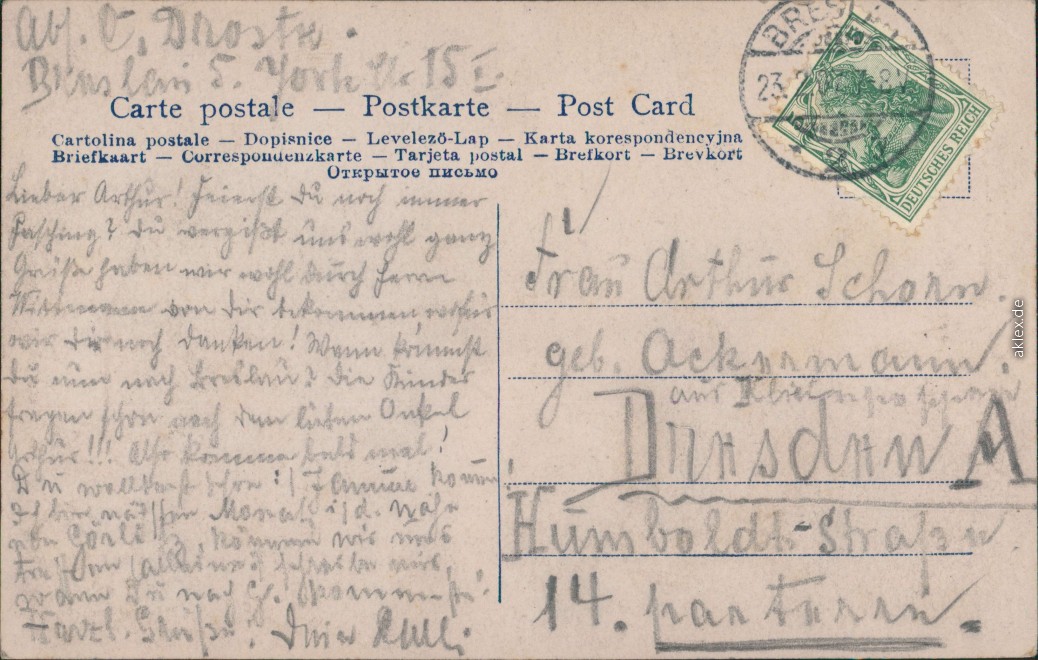 Abs. C. Droste.
Breslau 5. York Str 15 I.
BRESLAU
23. 2.
DEUTSCHES REICH
Carte postale — Postkarte — Post Card
Cartolina postale — Dopisnice — Levelező-Lap — Karta korespondencyjna
Briefkaart — Correspondenzkarte — Tarjeta postal — Brefkort — Brevkort
Открытое письмо
Lieber Arthur! Feierst Du noch immer
Fasching? Du vergißt uns wohl ganz
Grüße haben wir wohl durch Herrn
von Dir bekommen, wofür
wir Dir noch danken! Wann kommst
Du nun nach Breslau? Die Kinder
fragen schon nach dem lieben Onkel
Arthur!!! Also komme bald mal!
Du wolltest schon i/ Januar kommen
nächsten Monat i/d. Nähe
von Görlitz, können wir uns
treffen schreibe uns,
wann Du nach G. kommst!
Herzl. Grüße! Deine
Frau Arthur Schorn.
geb. Ackermann.
aus
Dresden A
Humboldt-Straße
14. parterre.
aklex.de